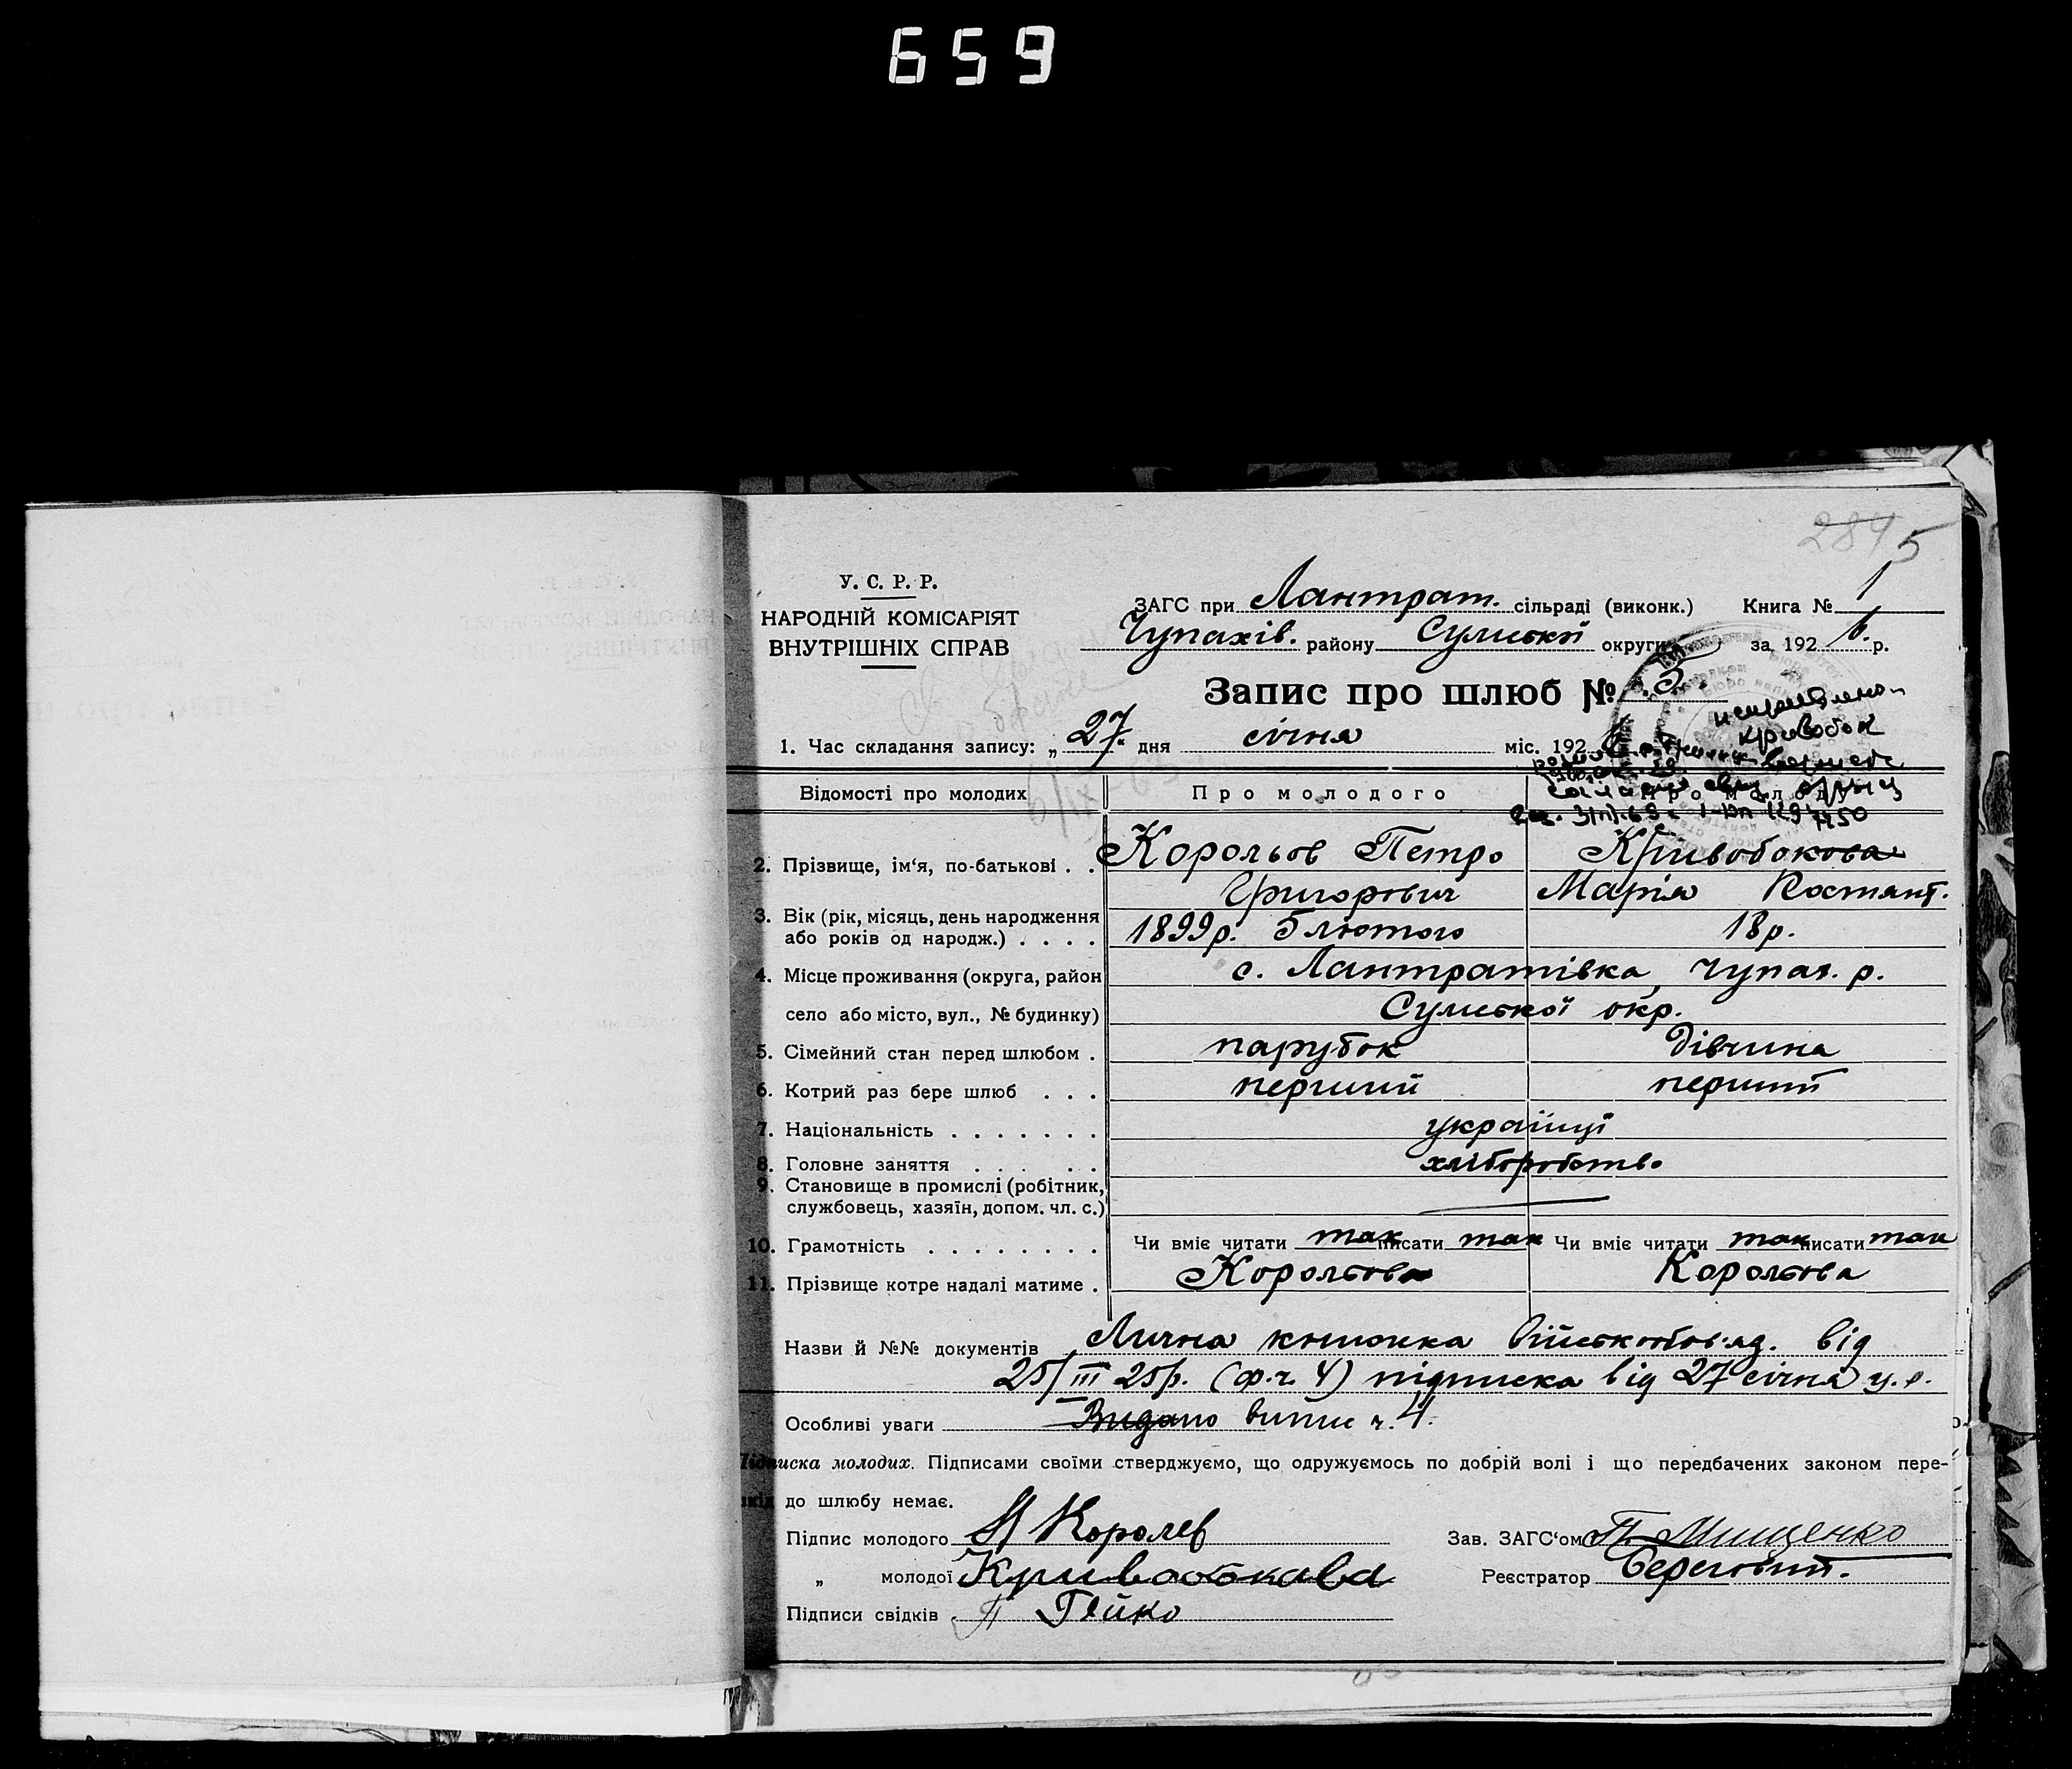 659
2845
У. С. Р. Р.
НАРОДНІЙ КОМІСАРІЯТ
ВНУТРІШНІХ СПРАВ
ЗАГС при Лантрат. сільраді (виконк.) Книга № 1
Чупахів. району Сумської округи за 192 6. р.
Запис про шлюб № 3.
1. Час складання запису: „ 27 “ дня січня міс. 192
исправлено
Кривобок
Відомості про молодих Про молодого Про молоду
2. Прізвище, ім‘я, по-батькові . . Корольов Петро Кривобокова
Григорович Марія Костянт.
3. Вік (рік, місяць, день народження
або років од народж.) . . . . 1899р. 5 лютого 18р.
4. Місце проживання (округа, район с. Лантратівка, Чупах. р.
село або місто, вул., № будинку) Сумської окр.
5. Сімейний стан перед шлюбом . парубок дівчина
6. Котрий раз бере шлюб . . . перший перший
7. Національність . . . . . . . українці
8. Головне заняття . . . . . хліборобство
9. Становище в промислі (робітник,
службовець, хазяїн, допом. чл. с.)
10. Грамотність . . . . . . . . Чи вміє читати так писати так Чи вміє читати так писати так
11. Прізвище котре надалі матиме . Корольова Корольова
Назви й №№ документів Лична книжка військовобов'яз. від
25/III 25р. (ф.ч. 4) підписка від 27 січня ц.р.
Особливі уваги Видано випис ч. 4.
Підписка молодих. Підписами своїми стверджуємо, що одружуємось по добрій волі і що передбачених законом пере-
шкід до шлюбу немає.
Підпис молодого П Королев Зав. ЗАГС‘ом П. Мищенко
„ молодої Кривобокава Реєстратор Береговий.
Підписи свідків П Гейко